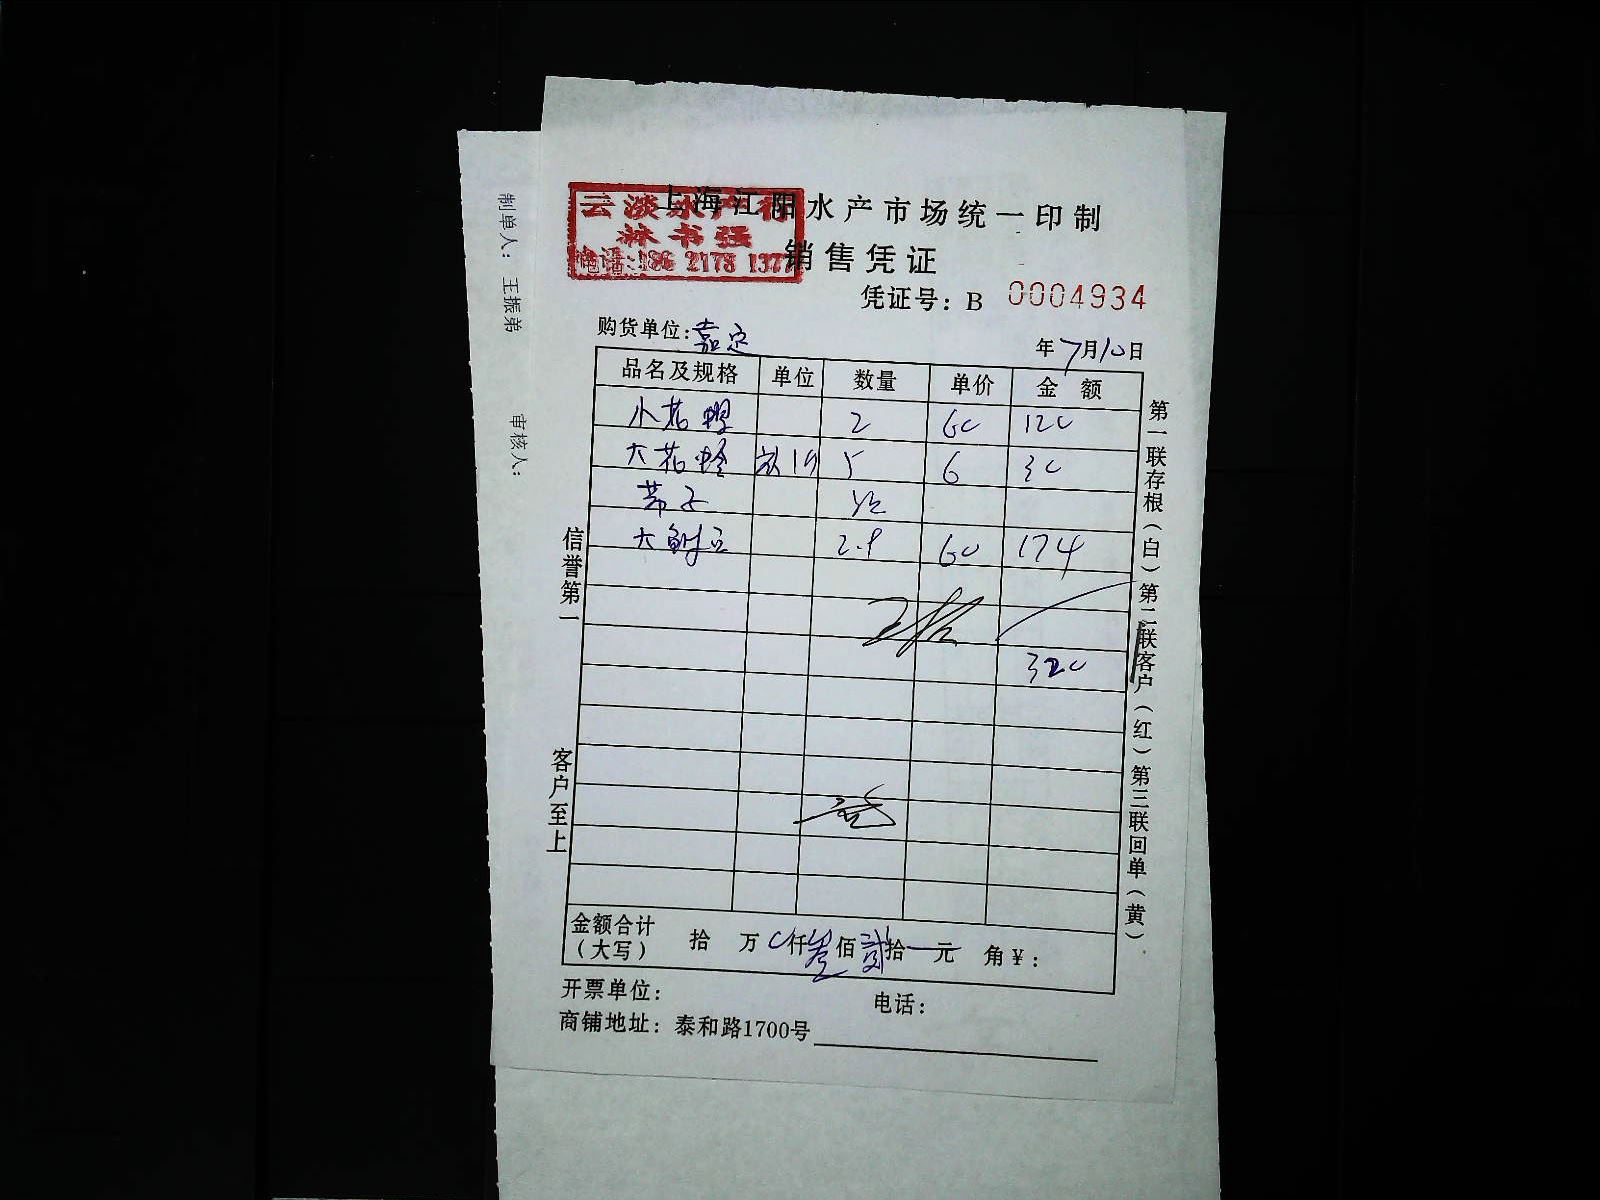 上海江阳水产市场统一印制
云淡水产行
林书强
电话:186 2178 137
销售凭证
凭证号：B 0004934
购货单位:嘉定
年7月10日
品名及规格 单位 数量 单价 金 额
小花 2 60 120
大花 5 6 30
带子 1/2
大 2.9 60 174
320
金额合计
（大写） 拾 万 0仟叁佰贰拾 元 角￥：
开票单位：
电话：
商铺地址：泰和路1700号
信誉第一
客户至上
第一联存根（白）第二联客户（红）第三联回单（黄）
制单人：王振弟
审核人：